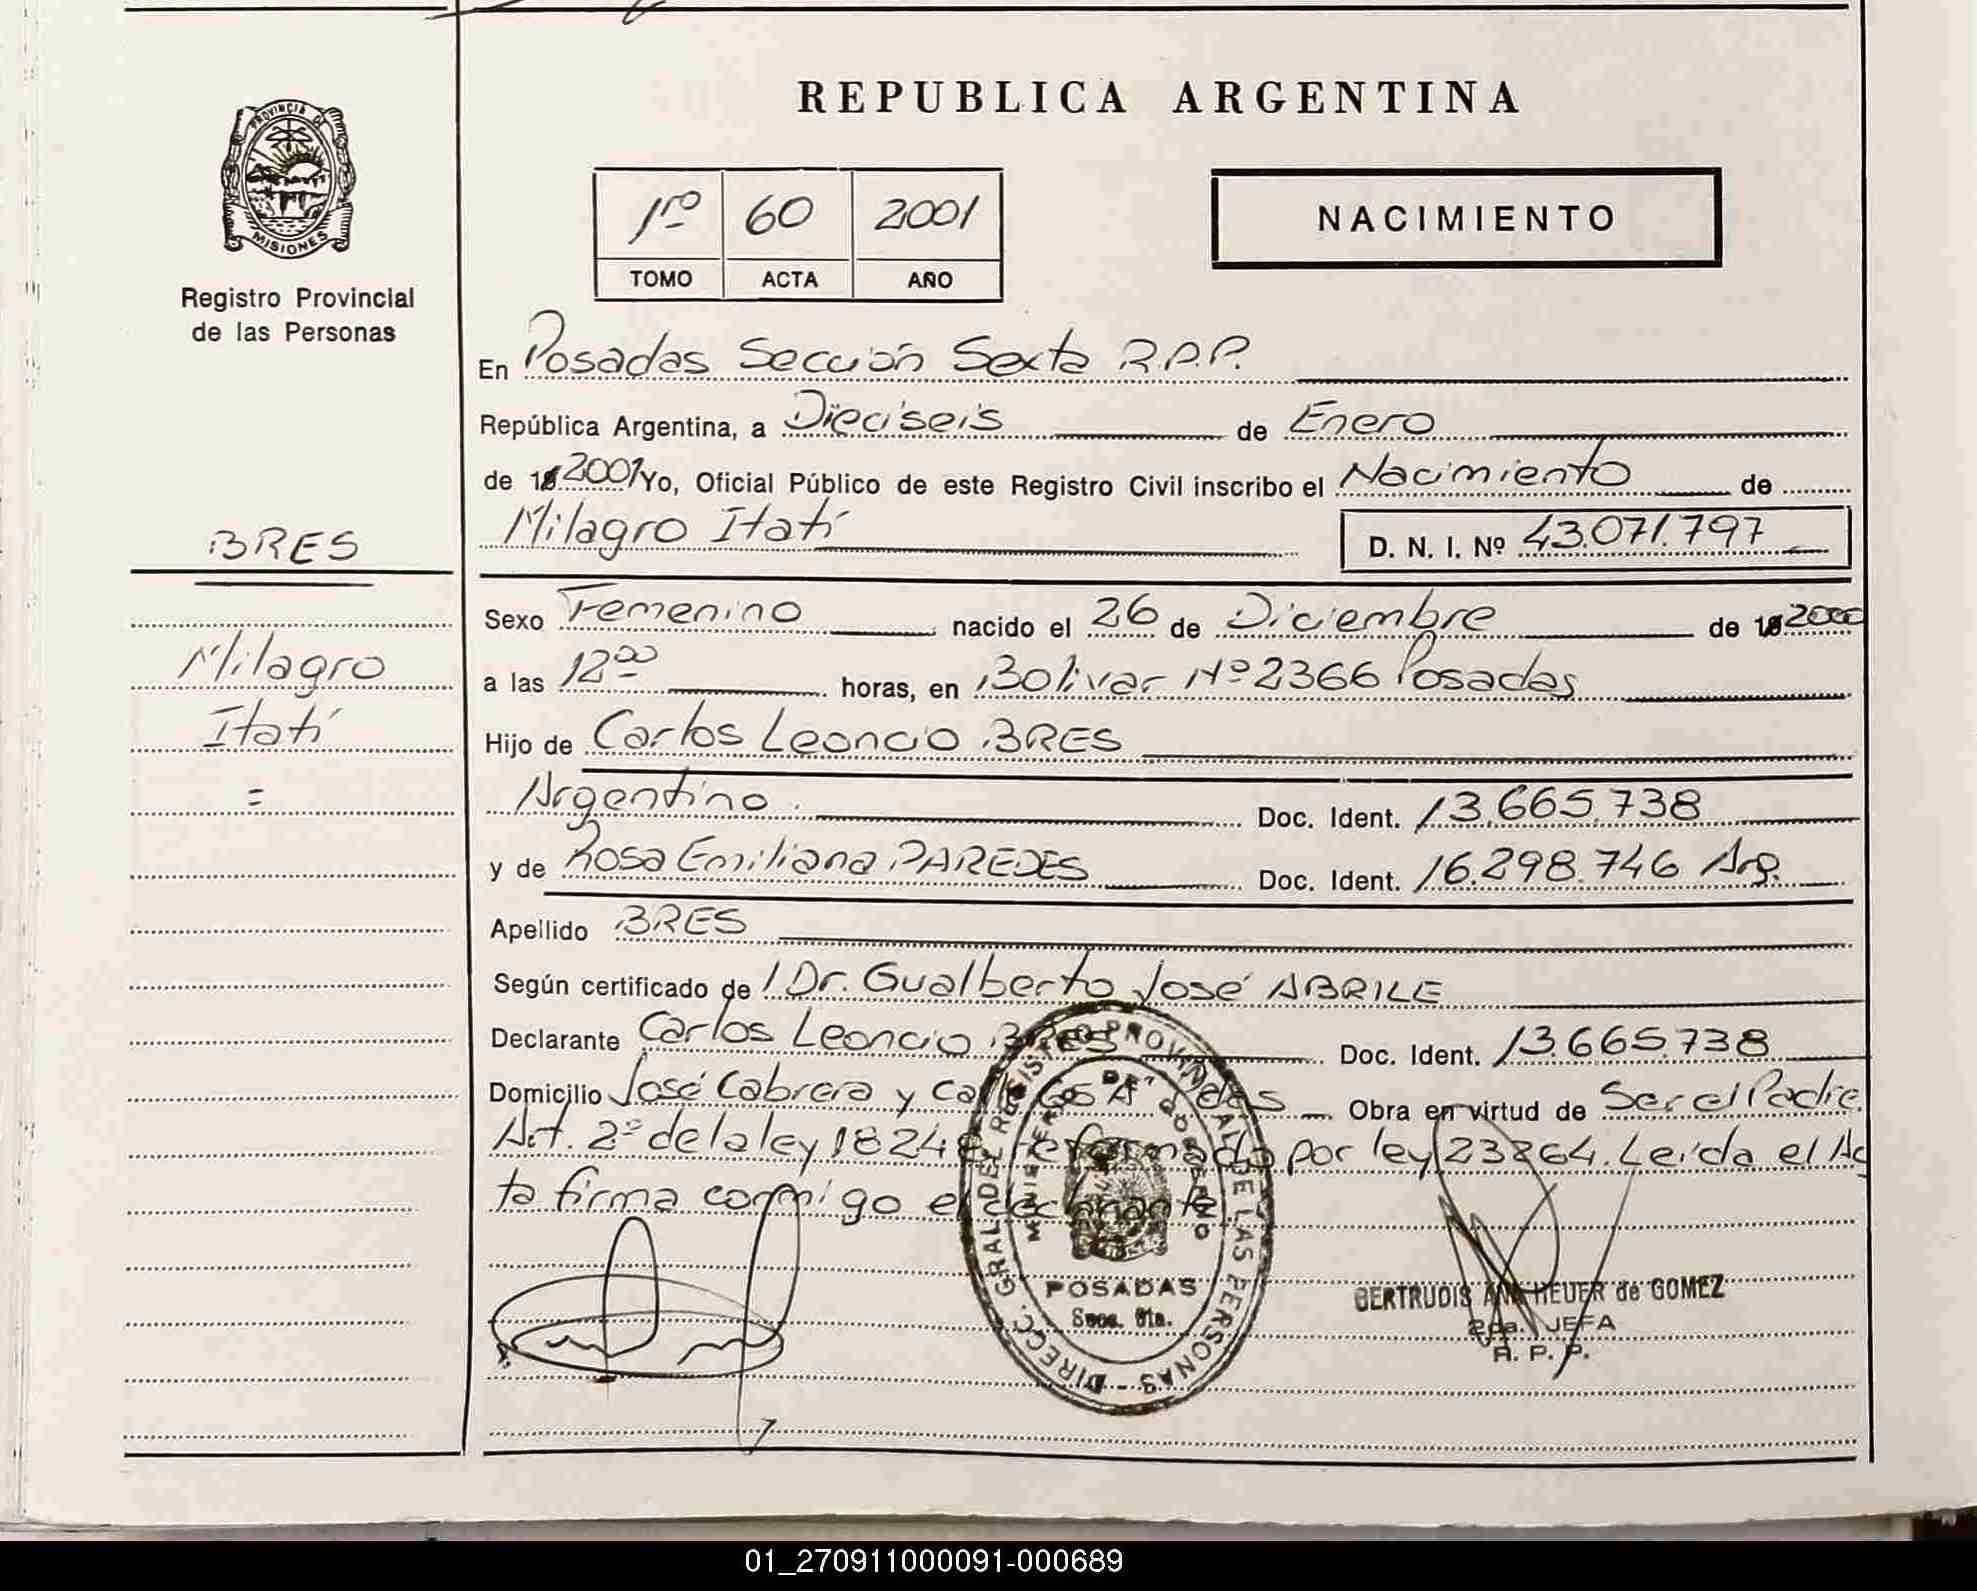 REPUBLICA ARGENTINA
PROVINCIA D
MISIONES
Registro Provincial
de las Personas
1ro 60 2001
TOMO ACTA AÑO
NACIMIENTO
En Posadas Sección Sexta R.P.P.
República Argentina, a Dieciseis de Enero
de 2001 Yo, Oficial Público de este Registro Civil inscribo el Nacimiento de
Milagro Itatí D. N. I. Nº 43.071.797
BRES
Milagro
Itatí
=
Sexo Femenino nacido el 26 de Diciembre de 2000
a las 12 00 horas, en Bolivar Nº 2366 Posadas
Hijo de Carlos Leoncio BRES
Argentino. Doc. Ident. 13.665.738
y de Rosa Emiliana PAREDES Doc. Ident. 16.298.746 Arg.
Apellido BRES
Según certificado de Dr. Gualberto José ABRILE
Declarante Carlos Leoncio BRES Doc. Ident. 13.665.738
Domicilio José Cabrera y Calle Obra en virtud de Ser el Padre
Art. 2º de la ley 18248 reformado por ley 23264. Leída el Ac
ta firma conmigo el declarante.
DIRECC. GRAL. DEL REGISTRO PROVINCIAL DE LAS PERSONAS -
MINISTERIO DE GOBIERNO
POSADAS
Secc. 6ta.
GERTRUDIS ANA HEUER de GOMEZ
2da. JEFA
R. P. P.
01_270911000091-000689